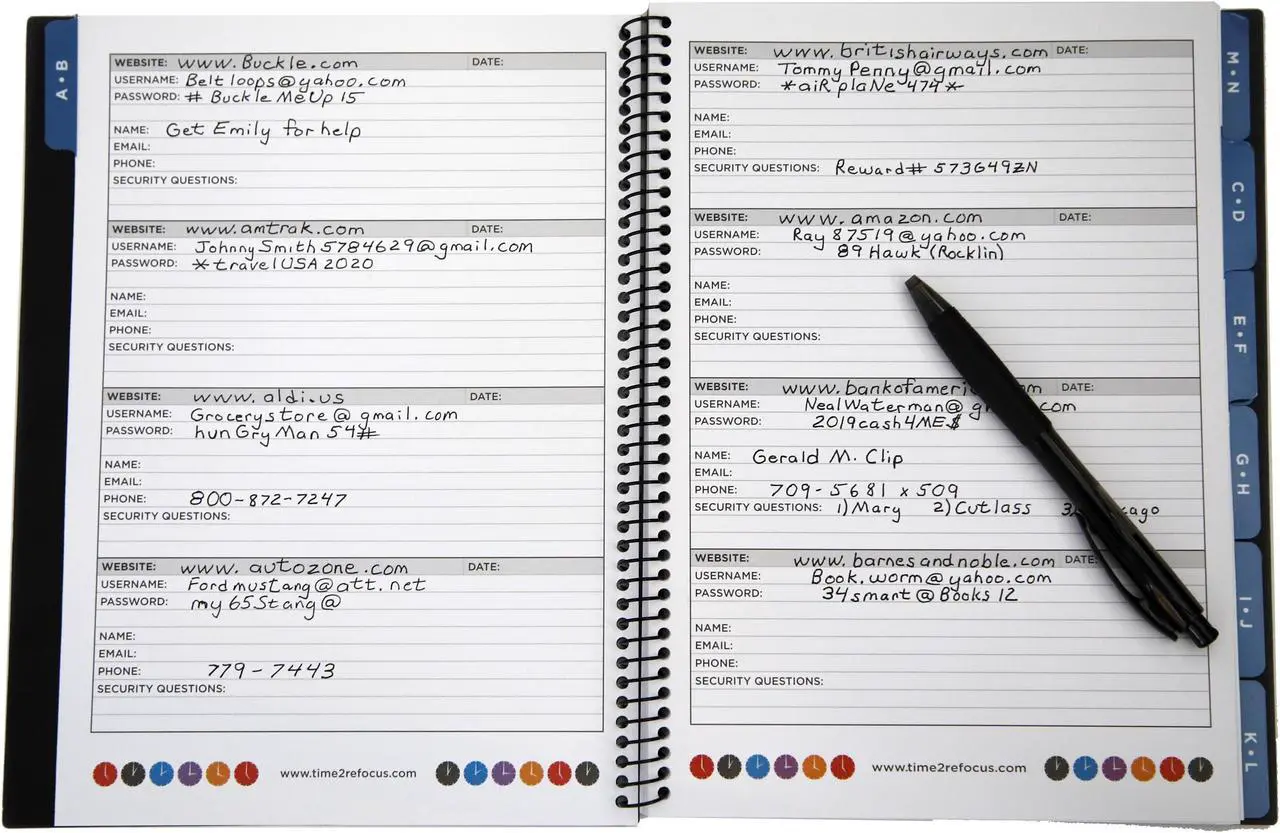 A • B
WEBSITE: www.Buckle.com DATE:
USERNAME: Beltloops@yahoo.com
PASSWORD: # BuckleMeUp15
NAME: Get Emily for help
EMAIL:
PHONE:
SECURITY QUESTIONS:
WEBSITE: www.amtrak.com DATE:
USERNAME: JohnnySmith5784629@gmail.com
PASSWORD: *travelUSA2020
NAME:
EMAIL:
PHONE:
SECURITY QUESTIONS:
WEBSITE: www.aldi.us DATE:
USERNAME: Grocerystore@gmail.com
PASSWORD: hunGryMan54#
NAME:
EMAIL:
PHONE: 800-872-7247
SECURITY QUESTIONS:
WEBSITE: www.autozone.com DATE:
USERNAME: Fordmustang@att.net
PASSWORD: my65Stang@
NAME:
EMAIL:
PHONE: 779-7443
SECURITY QUESTIONS:
www.time2refocus.com
WEBSITE: www.britishairways.com DATE:
USERNAME: TommyPenny@gmail.com
PASSWORD: *aiRplaNe474*
NAME:
EMAIL:
PHONE:
SECURITY QUESTIONS: Reward# 573649ZN
WEBSITE: www.amazon.com DATE:
USERNAME: Ray87519@yahoo.com
PASSWORD: 89Hawk(Rocklin)
NAME:
EMAIL:
PHONE:
SECURITY QUESTIONS:
WEBSITE: DATE:
USERNAME: NealWaterman@
PASSWORD: 2019cash4ME$
NAME: Gerald M. Clip
EMAIL:
PHONE: 709-5681 x509
SECURITY QUESTIONS: 1) Mary 2) Cutlass
WEBSITE: www.barnesandnoble.com DATE:
USERNAME: Book.worm@yahoo.com
PASSWORD: 34smart@Books12
NAME:
EMAIL:
PHONE:
SECURITY QUESTIONS:
www.time2refocus.com
M • N
C • D
E • F
G • H
I • J
K • L